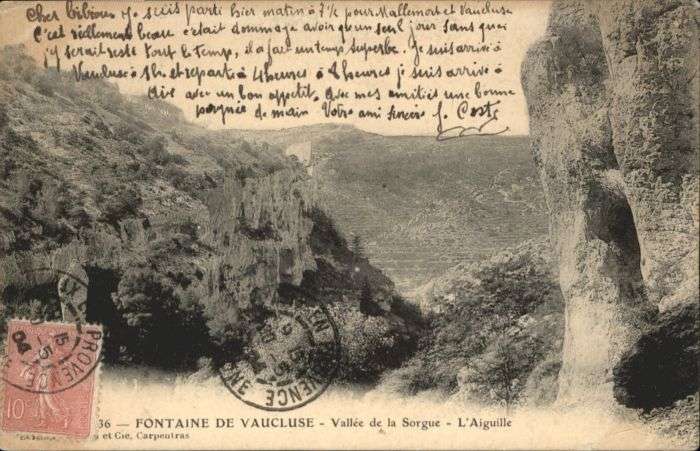 Cher Bibiou Je suis parti hier matin à 5h ½ pour Mallemort et Vaucluse
C'est réellement beau c'était dommage avoir qu'un seul jour sans quoi
j'y serait resté tout le temps, il a fait un temps superbe. Je suis arrivé à
Vaucluse à 1h. et reparti à 4 heures à 8 heures je suis arrivé à
Aix avec un bon appetit, avec mes amitiés une bonne
poignée de main Votre ami sincère J. Coste
PROVENCE
15 -5 04
10
PROVENCE
15 -5
36 — FONTAINE DE VAUCLUSE - Vallée de la Sorgue - L'Aiguille
et Cie, Carpentras